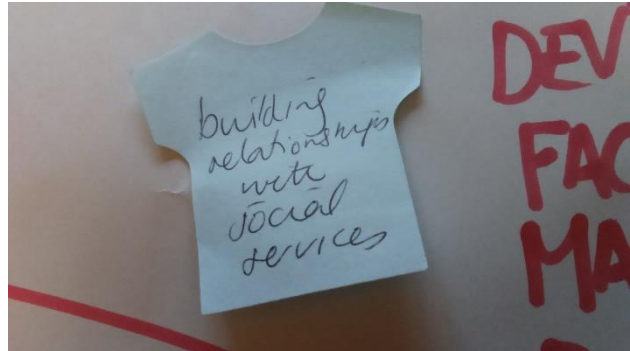 building
relationships
with
social
services
DEV
FAC
MA